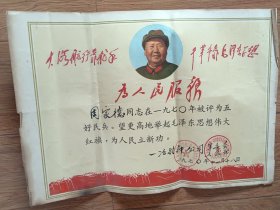 大海航行靠舵手
干革命靠毛泽东思想
为人民服务
周家德同志在一九七〇年被评为五
好民兵。望更高地举起毛泽东思想伟大
红旗，为人民立新功。